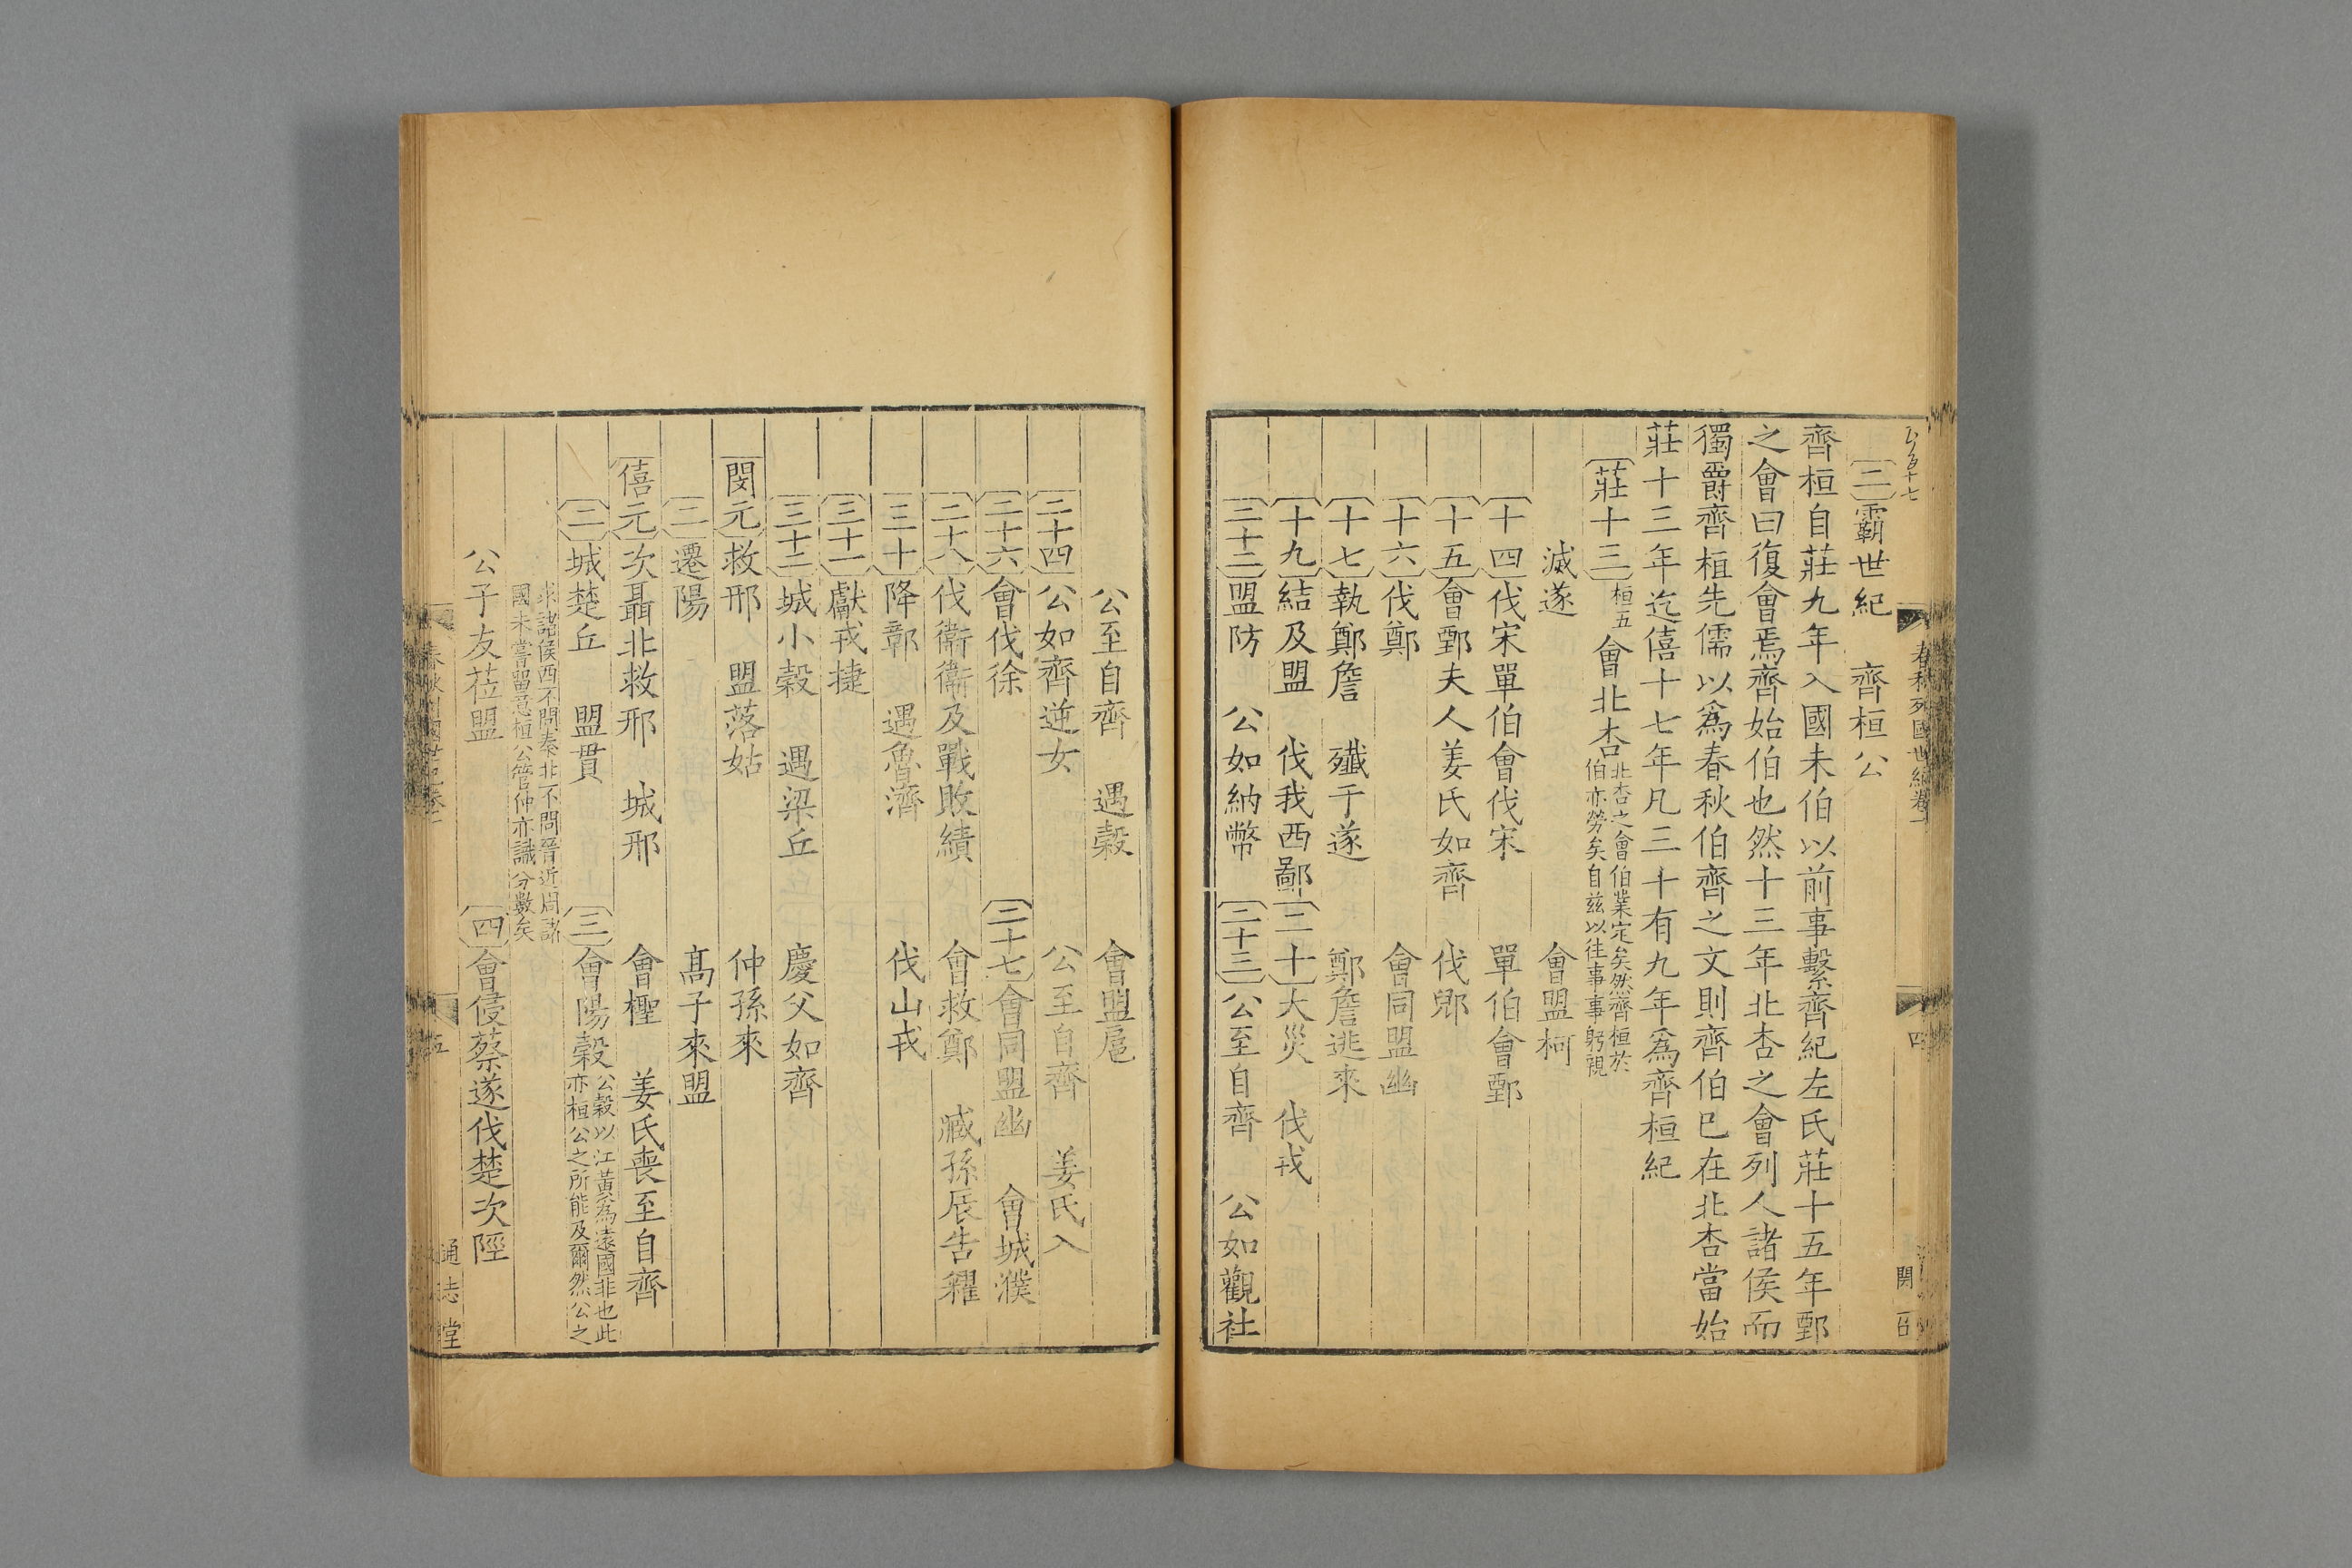 二霸世紀　齊桓公
齊桓自莊九年入國未伯以前事繫齊紀左氏莊十五年鄄
之會曰復會焉齊始伯也然十三年北杏之會列人諸侯而
獨爵齊桓先儒以爲春秋伯齊之文則齊伯已在北杏當始
莊十三年迄僖十七年凡三十有九年爲齊桓紀
莊十三桓五　會北杏北杏之會伯業定矣然齊桓於
伯亦勞矣自兹以往事事躬親
滅遂　會盟柯
十四伐宋單伯會伐宋　單伯會鄄
十五會鄄夫人姜氏如齊　伐郳
十六伐鄭　會同盟幽
十七執鄭詹　殱于遂　鄭詹逃來
十九結及盟　伐我西鄙二十大災　伐戎
二十二盟防　公如納幣二十三公至自齊　公如觀社
春秋列國世紀卷
四
公至自齊　遇穀　會盟扈
二十四公如齊逆女　公至自齊　姜氏入
二十六會伐徐　二十七會同盟幽　會城濮
二十八伐衞衞及戰敗績　會救鄭　臧孫辰告糴
三十降鄣　遇魯濟　伐山戎
三十一獻戎捷
三十二城小穀　遇梁丘　慶父如齊
閔元救邢　盟落姑　仲孫來
二遷陽　高子來盟
僖元次聶北救邢　城邢　會檉　姜氏喪至自齊
二城楚丘　盟貫　三會陽穀公穀以江黃爲遠國非也此
亦桓公之所能及爾然公之
求諸侯西不問秦北不問晉近周諸
國未嘗留意桓公管仲亦識分數矣
公子友莅盟　四會侵蔡遂伐楚次陘
五
通志堂